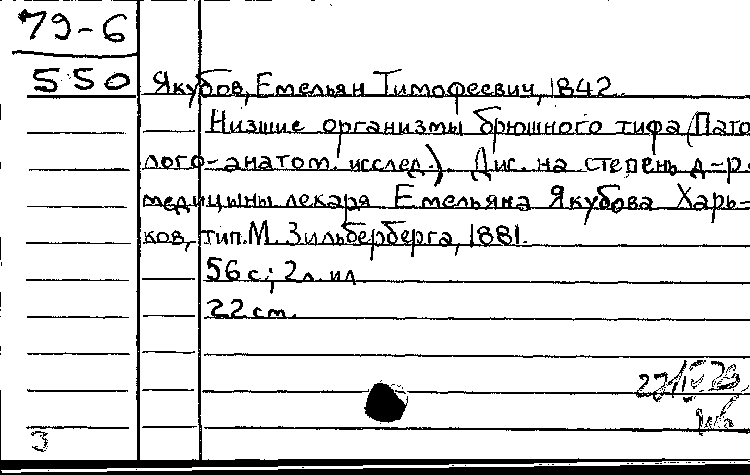 79-6
550
Якубов, Емельян Тимофеевич, 1842
Низшие организмы брюшного тифа (Пато
лого-анатом. исслед.). Дис. на степень д-ра
медицыны лекаря Емельяна Якубова Харь-
ков, тип. М. Зильберберга, 1881.
56 с.; 2 л. ил.
22 см.
27/IV 79
3